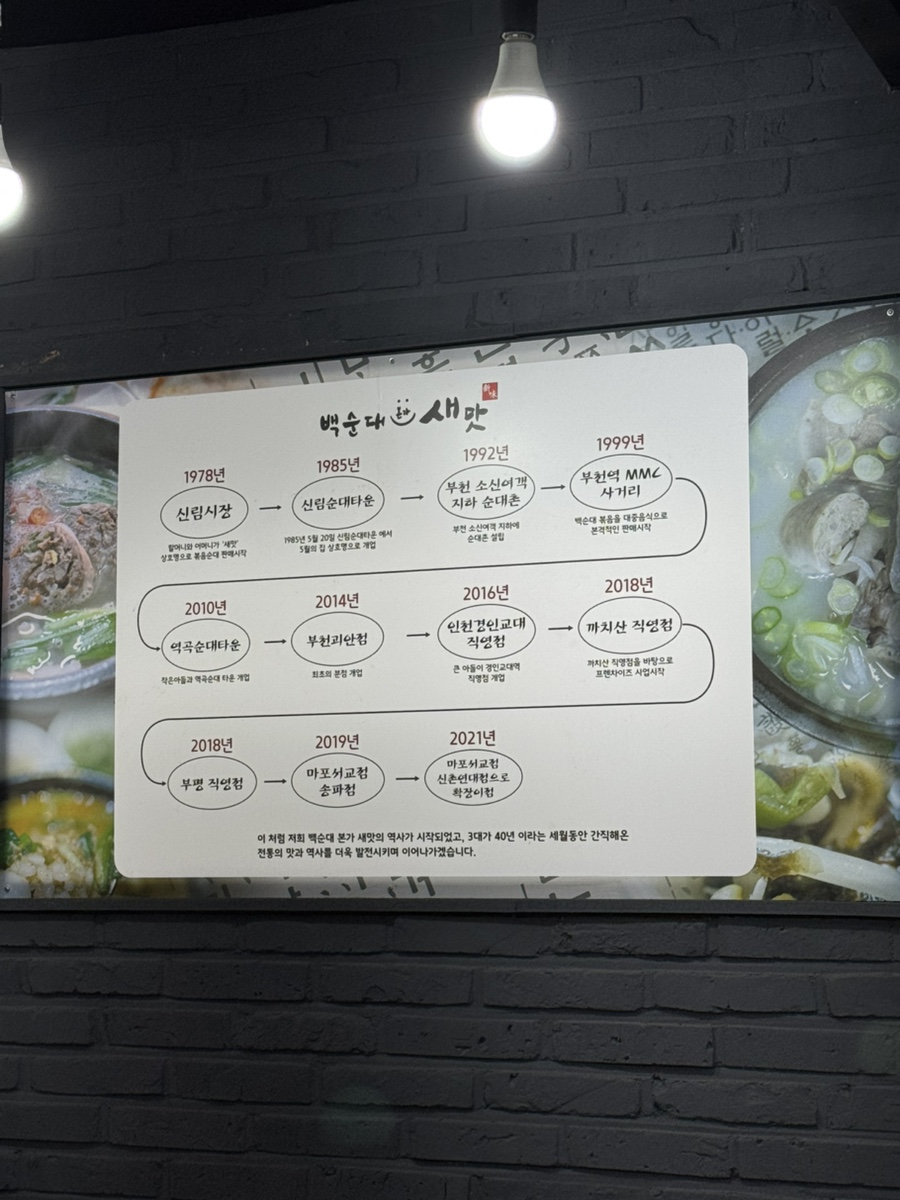 백순대 본가 새맛
1978년
신림시장
할머니와 어머니가 '새맛'
상호명으로 볶음순대 판매시작
1985년
신림순대타운
1985년 5월 20일 신림순대타운 에서
5월의 집 상호명으로 개업
1992년
부천 소신여객
지하 순대촌
부천 소신여객 지하에
순대촌 설립
1999년
부천역 MMC
사거리
백순대 볶음을 대중음식으로
본격적인 판매시작
2010년
역곡순대타운
작은아들과 역곡순대 타운 개업
2014년
부천괴안점
최초의 본점 개업
2016년
인천경인교대
직영점
큰 아들이 경인교대역
직영점 개업
2018년
까치산 직영점
까치산 직영점을 바탕으로
프렌차이즈 사업시작
2018년
부평 직영점
2019년
마포서교점
송파점
2021년
마포서교점
신촌연대점으로
확장이전
이 처럼 저희 백순대 본가 새맛의 역사가 시작되었고, 3대가 40년 이라는 세월동안 간직해온
전통의 맛과 역사를 더욱 발전시키며 이어나가겠습니다.